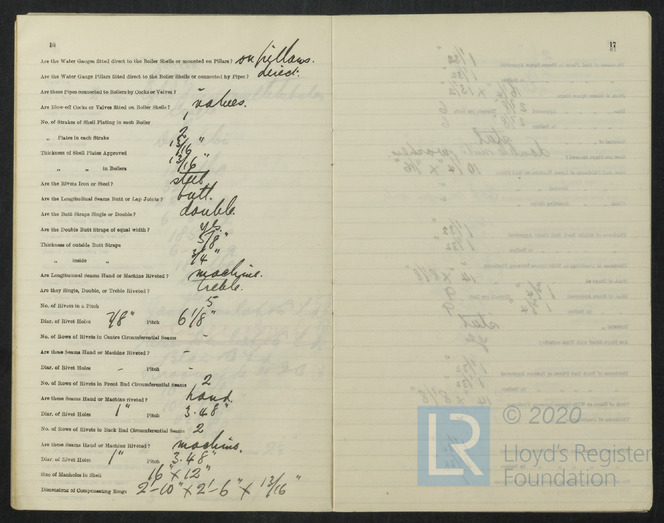 16
Are the Water Gauges fitted direct to the Boiler Shells or mounted on Pillars? on pillars.
Are the Water Gauge Pillars fitted direct to the Boiler Shells or connected by Pipes? direct.
Are these Pipes connected to Boilers by Cocks or Valves? "
Are Blow-off Cocks or Valves fitted on Boiler Shells? valves.
No. of Strakes of Shell Plating in each Boiler 1
„ Plates in each Strake 2
Thickness of Shell Plates Approved 13/16"
„ „ in Boilers 13/16"
Are the Rivets Iron or Steel? steel
Are the Longitudinal Seams Butt or Lap Joints? butt.
Are the Butt Straps Single or Double? double.
Are the Double Butt Straps of equal width? yes.
Thickness of outside Butt Straps 5/8"
„ inside „ 3/4"
Are Longitudinal Seams Hand or Machine Riveted? machine.
Are they Single, Double, or Treble Riveted? treble.
No. of Rivets in a Pitch 5
Diar. of Rivet Holes 7/8" Pitch 6 1/8"
No. of Rows of Rivets in Centre Circumferential Seams -
Are these Seams Hand or Machine Riveted? -
Diar. of Rivet Holes - Pitch -
No. of Rows of Rivets in Front End Circumferential Seams 2
Are these Seams Hand or Machine riveted? hand.
Diar. of Rivet Holes 1" Pitch 3.48"
No. of Rows of Rivets in Back End Circumferential Seams 2
Are these Seams Hand or Machine Riveted? machine.
Diar. of Rivet Holes 1" Pitch 3.48"
Size of Manholes in Shell 16" x 12"
Dimensions of Compensating Rings 2'-10" x 2'-6" x 13/16"
17
© 2020
LR
Lloyd's Register
Foundation